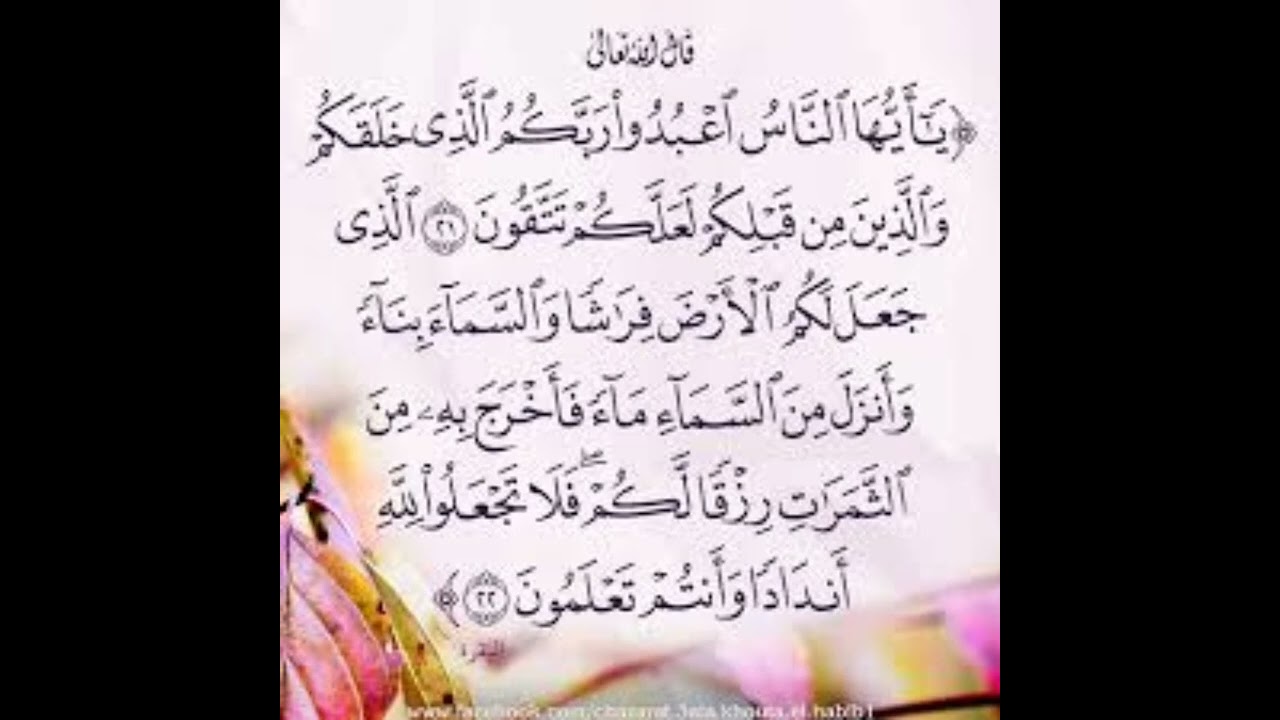 قال الله تعالى
﴿يَٰٓأَيُّهَا ٱلنَّاسُ ٱعۡبُدُواْ رَبَّكُمُ ٱلَّذِى خَلَقَكُمۡ
وَٱلَّذِينَ مِن قَبۡلِكُمۡ لَعَلَّكُمۡ تَتَّقُونَ ٢١ ٱلَّذِى
جَعَلَ لَكُمُ ٱلۡأَرۡضَ فِرَٰشٗا وَٱلسَّمَآءَ بِنَآءٗ
وَأَنزَلَ مِنَ ٱلسَّمَآءِ مَآءٗ فَأَخۡرَجَ بِهِۦ مِنَ
ٱلثَّمَرَٰتِ رِزۡقٗا لَّكُمۡۖ فَلَا تَجۡعَلُواْ لِلَّهِ
أَندَادٗا وَأَنتُمۡ تَعۡلَمُونَ ٢٢﴾
البقرة